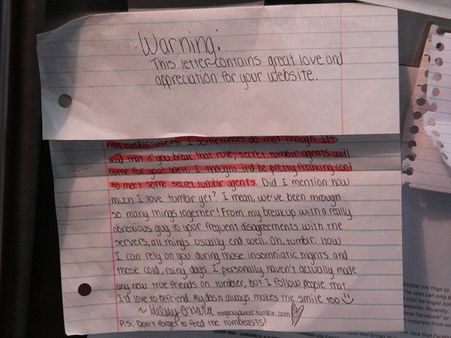 Warning:
This letter contains great love and
appreciation for your website.
non tumblr users. I sometimes do that though. It's
said that if you break that rule, secret tumblr agents will
come for you! Well, I thought it'd be pretty freaking cool
to meet some secret tumblr agents. Did I mention how
much I love tumblr yet? I mean, we've been through
so many things together! From my break up with a really
obnoxious guy to your frequent disagreements with the
servers, all things usually end well. Oh, tumblr. How
I can rely on you during those insomniatic nights and
those cold, rainy days. I personally haven't actually made
any new true friends on tumblr, but I follow people that
I'd love to befriend. My dash always makes me smile too
~
P.S. Don't forget to feed the tumbeasts!